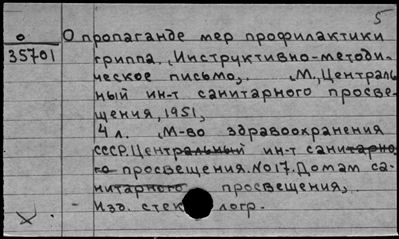 5
о
35701
О пропаганде мер профилактики
гриппа. Инструктивно-методи-
ческое письмо,. М., Централь
ный ин-т санитарного просве-
щения, 1951,
4 л. М-во здравоохранения
СССР. Центральный ин-т санитарно
го просвещения. No17. Домам са-
нитарного просвещения,.
- Изд. стек логр.